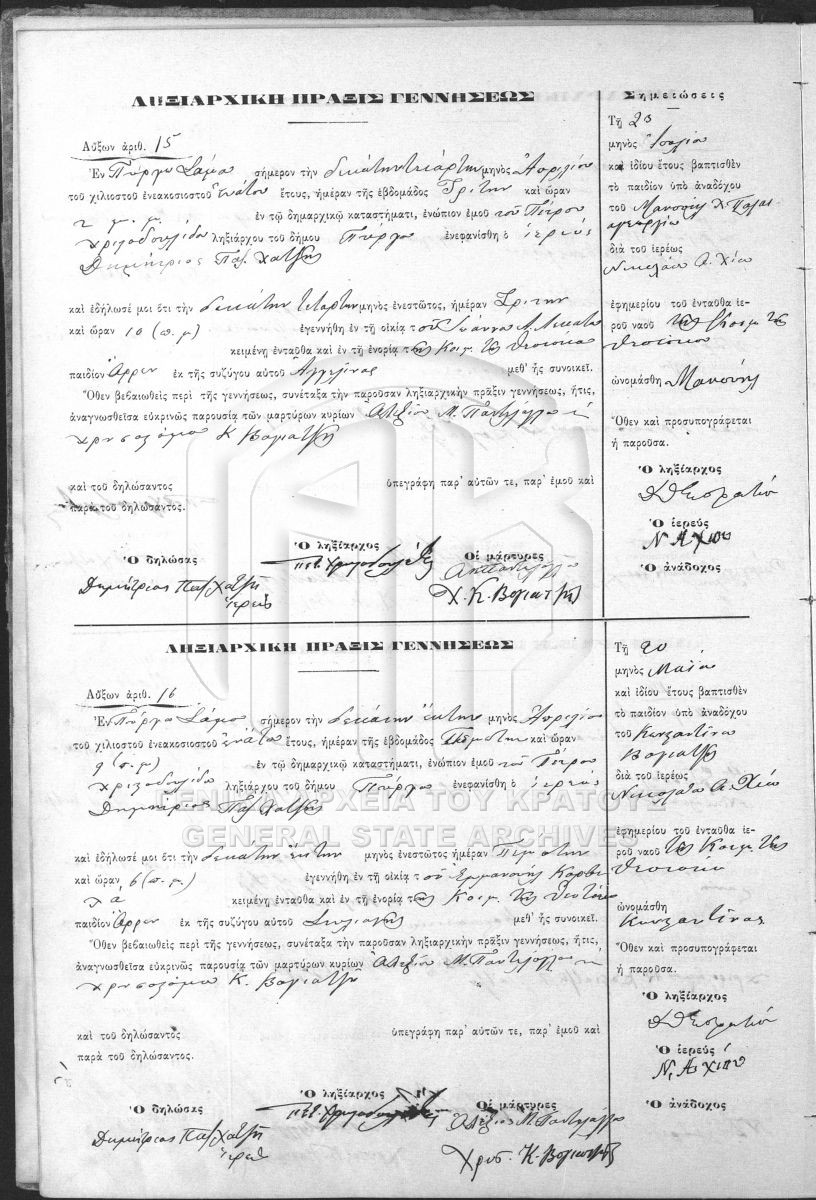 ΛΗΞΙΑΡΧΙΚΗ ΠΡΑΞΙΣ ΓΕΝΝΗΣΕΩΣ
Αὔξων ἀριθ. 15
Ἐν Πύργῳ Σάμου σήμερον τὴν δεκάτην τετάρτην μηνὸς Ἀπριλίου
τοῦ χιλιοστοῦ ἐνεακοσιοστοῦ ἐνάτου ἔτους, ἡμέραν τῆς ἑβδομάδος Τρίτην καὶ ὥραν
2 μ. μ. ἐν τῷ δημαρχικῷ καταστήματι, ἐνώπιον ἐμοῦ τοῦ Πέτρου
Χριζοδουλίδου ληξιάρχου τοῦ δήμου Πύργου ἐνεφανίσθη ὁ ἱερεύς
Δημήτριος Παπ. Χατζῆς
καὶ ἐδήλωσέ μοι ὅτι τὴν δεκάτην τετάρτην μηνὸς ἐνεστῶτος, ἡμέραν Τρίτην
καὶ ὥραν 10 (π. μ) ἐγεννήθη ἐν τῇ οἰκίᾳ τοῦ
κειμένῃ ἐνταῦθα καὶ ἐν τῇ ἐνορίᾳ τῆς Κοιμ. τῆς Θεοτόκου
παιδίον Ἄρρεν ἐκ τῆς συζύγου αὐτοῦ Ἀγγελίνας μεθ' ἧς συνοικεῖ.
Ὅθεν βεβαιωθεὶς περὶ τῆς γεννήσεως, συνέταξα τὴν παροῦσαν ληξιαρχικὴν πρᾶξιν γεννήσεως, ἥτις,
ἀναγνωσθεῖσα εὐκρινῶς παρουσίᾳ τῶν μαρτύρων κυρίων Ἀλεξίου Μ. Παντελόγλου
Χρυσοστόμου Κ. Βογιατζῆ
καὶ τοῦ δηλώσαντος ὑπεγράφη παρ' αὐτῶν τε, παρ' ἐμοῦ καὶ
παρὰ τοῦ δηλώσαντος.
Ὁ δηλώσας Ὁ ληξίαρχος Οἱ μάρτυρες
Δημήτριος Παπ Χατζῆς
ἱερεύς
Χ. Κ. Βογιατζῆς
Σημειώσεις
Τῇ 23
μηνὸς Ἰουλίου
καὶ ἰδίου ἔτους βαπτισθὲν
τὸ παιδίον ὑπὸ ἀναδόχου
τοῦ Μανουὴλ Χ. Παλαι
διὰ τοῦ ἱερέως
Νικολάου Α. Χίου
ἐφημερίου τοῦ ἐνταῦθα ἱε-
ροῦ ναοῦ τῆς Κοιμ. τῆς
Θεοτόκου
ὠνομάσθη Μανουήλ
Ὅθεν καὶ προσυπογράφεται
ἡ παροῦσα.
Ὁ ληξίαρχος
Ὁ ἱερεὺς
Ν. Α. Χίου
Ὁ ἀνάδοχος
ΛΗΞΙΑΡΧΙΚΗ ΠΡΑΞΙΣ ΓΕΝΝΗΣΕΩΣ
Αὔξων ἀριθ. 16
Ἐν Πύργῳ Σάμου σήμερον τὴν δεκάτην ἕκτην μηνὸς Ἀπριλίου
τοῦ χιλιοστοῦ ἐνεακοσιοστοῦ ἐνάτου ἔτους, ἡμέραν τῆς ἑβδομάδος Πέμπτην καὶ ὥραν
9 (π. μ) ἐν τῷ δημαρχικῷ καταστήματι, ἐνώπιον ἐμοῦ τοῦ Πέτρου
Χριζοδουλίδου ληξιάρχου τοῦ δήμου Πύργου ἐνεφανίσθη ὁ ἱερεύς
Δημήτριος Παπ. Χατζῆς
καὶ ἐδήλωσέ μοι ὅτι τὴν δεκάτην ἕκτην μηνὸς ἐνεστῶτος ἡμέραν Πέμπτην
καὶ ὥραν 6 (π. μ) ἐγεννήθη ἐν τῇ οἰκίᾳ τοῦ Ἐμμανουὴλ
κειμένῃ ἐνταῦθα καὶ ἐν τῇ ἐνορίᾳ τῆς Κοιμ. τῆς Θεοτόκου
παιδίον Ἄρρεν ἐκ τῆς συζύγου αὐτοῦ μεθ' ἧς συνοικεῖ.
Ὅθεν βεβαιωθεὶς περὶ τῆς γεννήσεως, συνέταξα τὴν παροῦσαν ληξιαρχικὴν πρᾶξιν γεννήσεως, ἥτις,
ἀναγνωσθεῖσα εὐκρινῶς παρουσίᾳ τῶν μαρτύρων κυρίων Ἀλεξίου Μ. Παντελόγλου
Χρυσοστόμου Κ. Βογιατζῆ
καὶ τοῦ δηλώσαντος ὑπεγράφη παρ' αὐτῶν τε, παρ' ἐμοῦ καὶ
παρὰ τοῦ δηλώσαντος.
Ὁ δηλώσας Ὁ ληξίαρχος Οἱ μάρτυρες
Δημήτριος Παπ Χατζῆς
ἱερεύς
Ἀλέξιος Μ. Παντελόγλου
Χρυσ. Κ. Βογιατζῆς
Τῇ 20
μηνὸς Μαΐου
καὶ ἰδίου ἔτους βαπτισθὲν
τὸ παιδίον ὑπὸ ἀναδόχου
τοῦ Κωνσταντίνου
Βογιατζῆ
διὰ τοῦ ἱερέως
Νικολάου Α. Χίου
ἐφημερίου τοῦ ἐνταῦθα ἱε-
ροῦ ναοῦ τῆς Κοιμ. τῆς
Θεοτόκου
ὠνομάσθη
Κωνσταντῖνος
Ὅθεν καὶ προσυπογράφεται
ἡ παροῦσα.
Ὁ ληξίαρχος
Ὁ ἱερεὺς
Ν. Α. Χίου
Ὁ ἀνάδοχος
ΓΕΝΙΚΑ ΑΡΧΕΙΑ ΤΟΥ ΚΡΑΤΟΥΣ
GENERAL STATE ARCHIVES